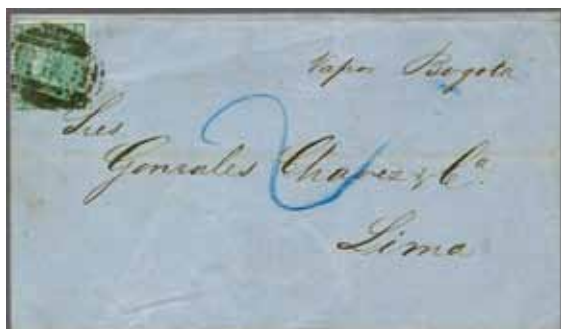 Vapor Bogotá
Sres
Gonzales Chavez y Cª
2
Lima